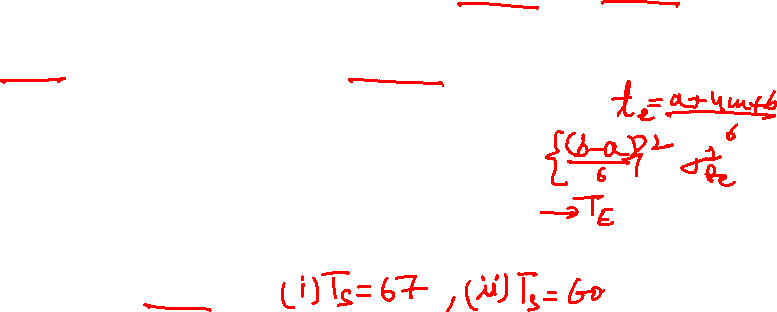 te = a+4m+b
6
{(b-a)/6}² σ²te
→ TE
(i) Ts = 67, (ii) Ts = 60